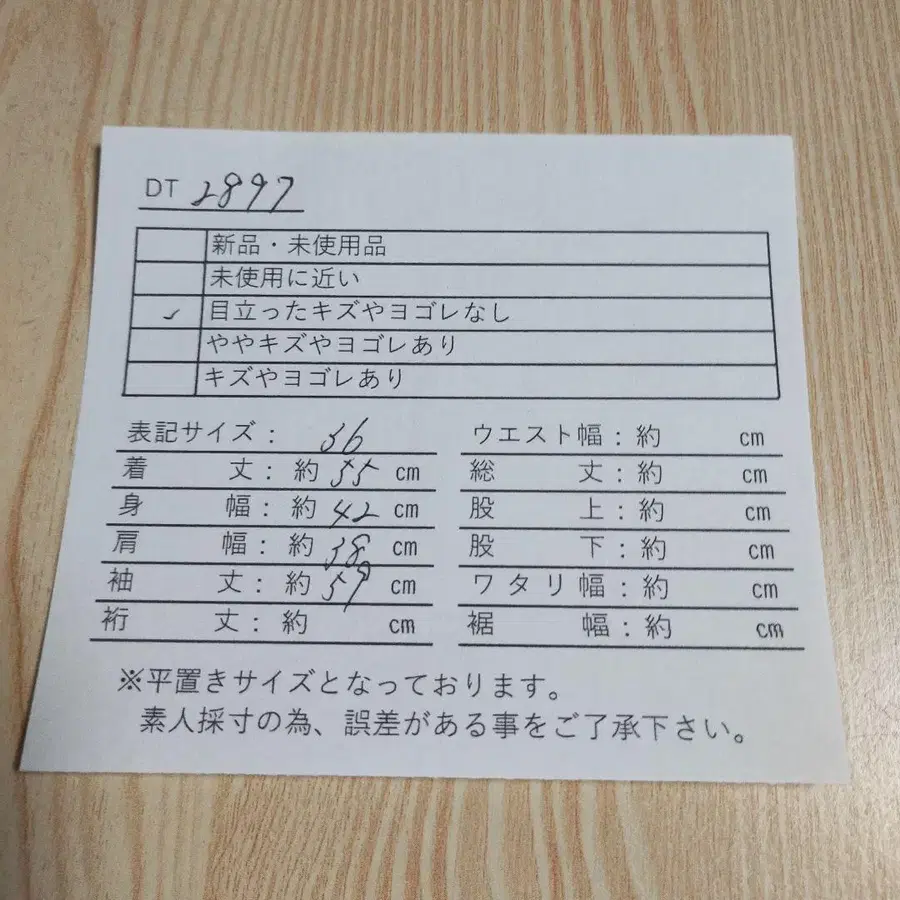 DT 2897
新品・未使用品
未使用に近い
✓ 目立ったキズやヨゴレなし
ややキズやヨゴレあり
キズやヨゴレあり
表記サイズ: 36
着丈:約55cm
身幅:約42cm
肩幅:約38cm
袖丈:約59cm
裄丈:約 cm
ウエスト幅:約 cm
総丈:約 cm
股上:約 cm
股下:約 cm
ワタリ幅:約 cm
裾幅:約 cm
※平置きサイズとなっております。
素人採寸の為、誤差がある事をご了承下さい。